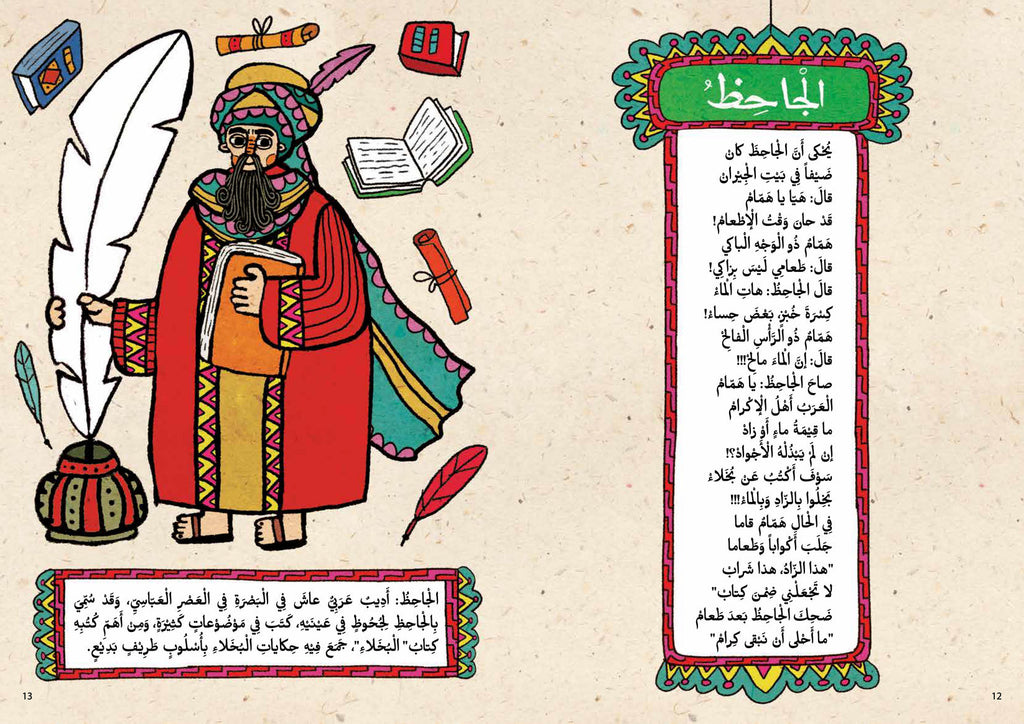 الْجاحِظُ
يُحْكى أَنَّ الْجاحِظَ كان
ضَيْفاً فِي بَيْتِ الْجِيْران
قالَ: هَيّا يا هَمّامْ
قَدْ حانَ وَقْتُ الْإطْعامْ!
هَمّامُ ذُو الْوَجْهِ الْباكي
قالَ: طَعامِي لَيْسَ بِزاكِي!
قالَ الْجاحِظُ: هاتِ الْماءْ
كِسْرَةَ خُبْزٍ، بَعْضَ حِساءْ!
هَمّامُ ذُو الرَّأْسِ الْفالِحْ
قالَ: إنَّ الْماءَ مالِحْ!!!
صاحَ الْجاحِظُ: يا هَمّامْ
الْعَرَبُ أَهْلُ الْإكْرامْ
ما قِيْمَةُ ماءٍ أَوْ زادْ
إن لَمْ يَبْذُلْهُ الْأَجْوادْ؟!
سَوْفَ أَكْتُبُ عَنْ بُخَلاءْ
بَخِلُوا بِالزّادِ وَبِالْماءْ!!!
فِي الْحالِ هَمّامُ قاما
جَلَبَ أَكْواباً وَطَعاما
"هذا الزّادُ، هذا شَرابْ
لا تَجْعَلْنِي ضِمْنَ كِتابْ"
ضَحِكَ الْجاحِظُ بَعدَ طَعامْ
"ما أَحْلى أَن نَبْقى كِرامْ"
12
الْجاحِظُ: أَدِيبٌ عَرَبِيٌّ عاشَ فِي الْبَصْرَةِ فِي الْعَصْرِ الْعَبّاسِيِّ، وَقَدْ سُمِّيَ
بِالْجاحِظِ لِجُحُوظٍ فِي عَيْنَيْهِ، كَتَبَ فِي مَوْضُوْعاتٍ كَثِيْرَةٍ، وَمِن أَهَمِّ كُتُبِهِ
كِتابُ "الْبُخَلاءِ"، جَمَعَ فِيْهِ حِكاياتِ الْبُخَلاءِ بِأُسْلُوبٍ طَرِيْفٍ بَدِيْعٍ.
13